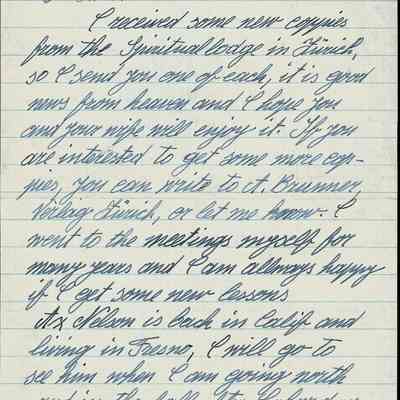 I received some new coppies
from the Spirituallodge in Zürich,
so I send you one of each, it is good
news from heaven and I hope you
and your wife will enjoy it. If you
are interested to get some more cop-
pies, you can write to A. Brunner,
Verlag Zürich, or let me know. I
went to the meetings myself for
many years and I am allways happy
if I get some new lessons
Ax Nelson is back in Calif and
living in Fresno, I will go to
see him when I am going north